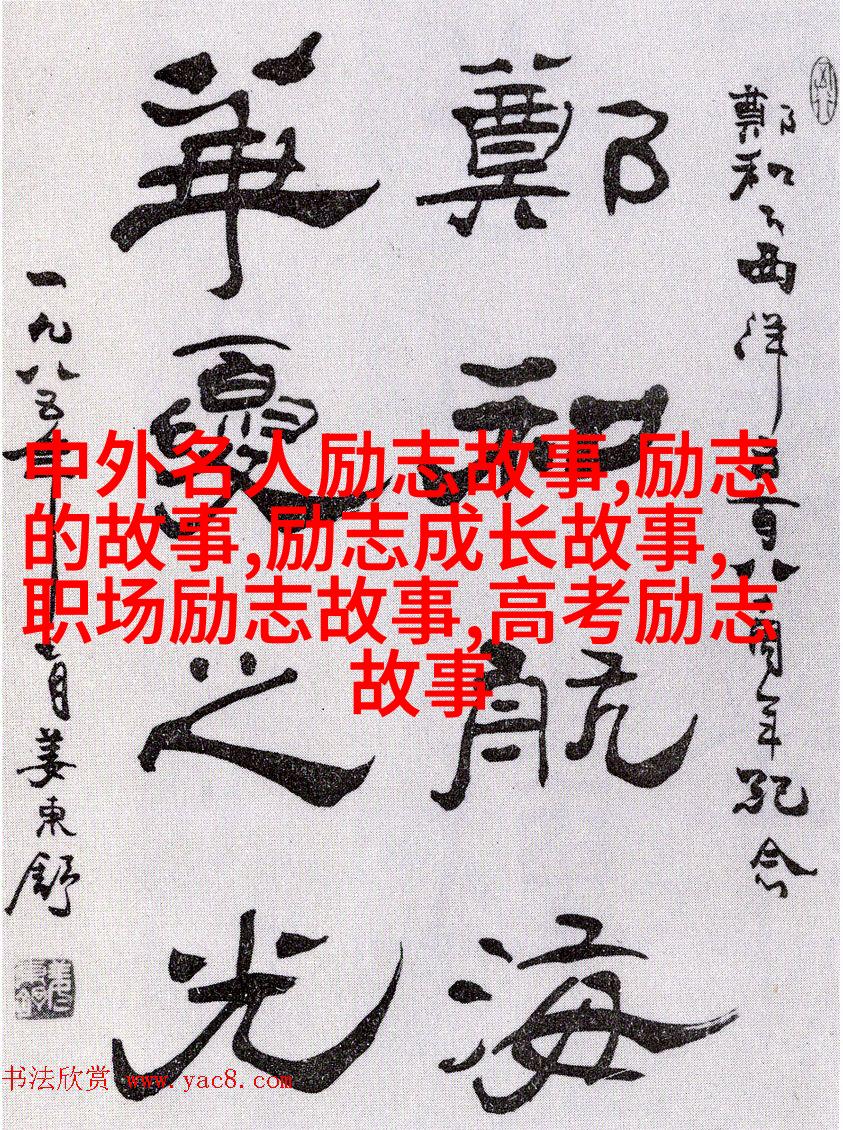 鄭和下西洋五百八周年紀念
鄭和航海
華夏之光
一九八五年月姜東舒
中外名人励志故事,励志
的故事,励志成长故事,
职场励志故事,高考励志
故事
书法欣赏 www.yac8.com